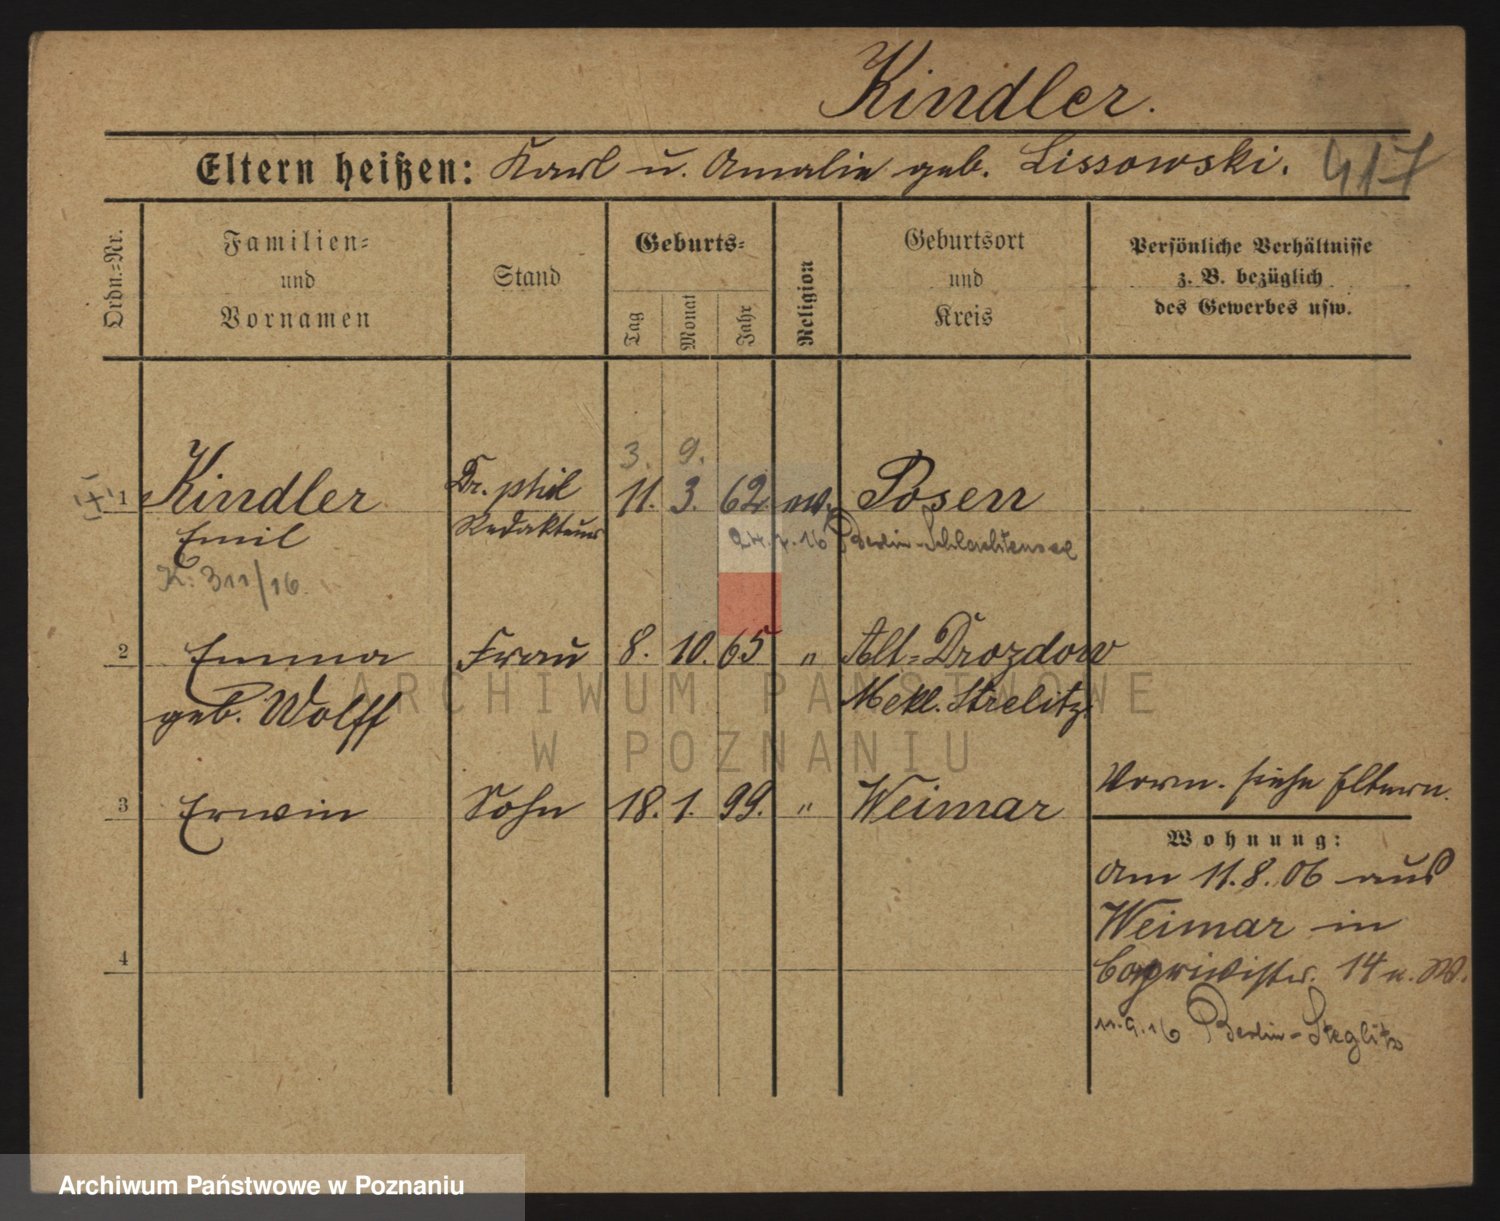 Kindler.
Eltern heißen: Karl u. Amalie geb. Lissowski. 417
Ordn.=Nr.
Familien=
und
Vornamen
Stand
Geburts=
Tag
Monat
Jahr
Religion
Geburtsort
und
Kreis
Persönliche Verhältnisse
z. B. bezüglich
des Gewerbes usw.
3. 9.
1 Kindler Dr. phil 11. 3. 62 ev. Posen
Emil Redakteur
24.7.16 Berlin-Schlachtensee
K: 311/16.
2 Emma Frau 8. 10. 65 " Alt=Drozdow
geb. Wolff Mekl. Strelitz.
3 Erwin Sohn 18. 1. 99. " Weimar
Vorm. siehe Eltern.
Wohnung:
Am 11.8.06 aus
Weimar in
Caprivistr. 14 u. W.
4
11.9.16 Berlin-Steglitz
ARCHIWUM PAŃSTWOWE
W POZNANIU
Archiwum Państwowe w Poznaniu